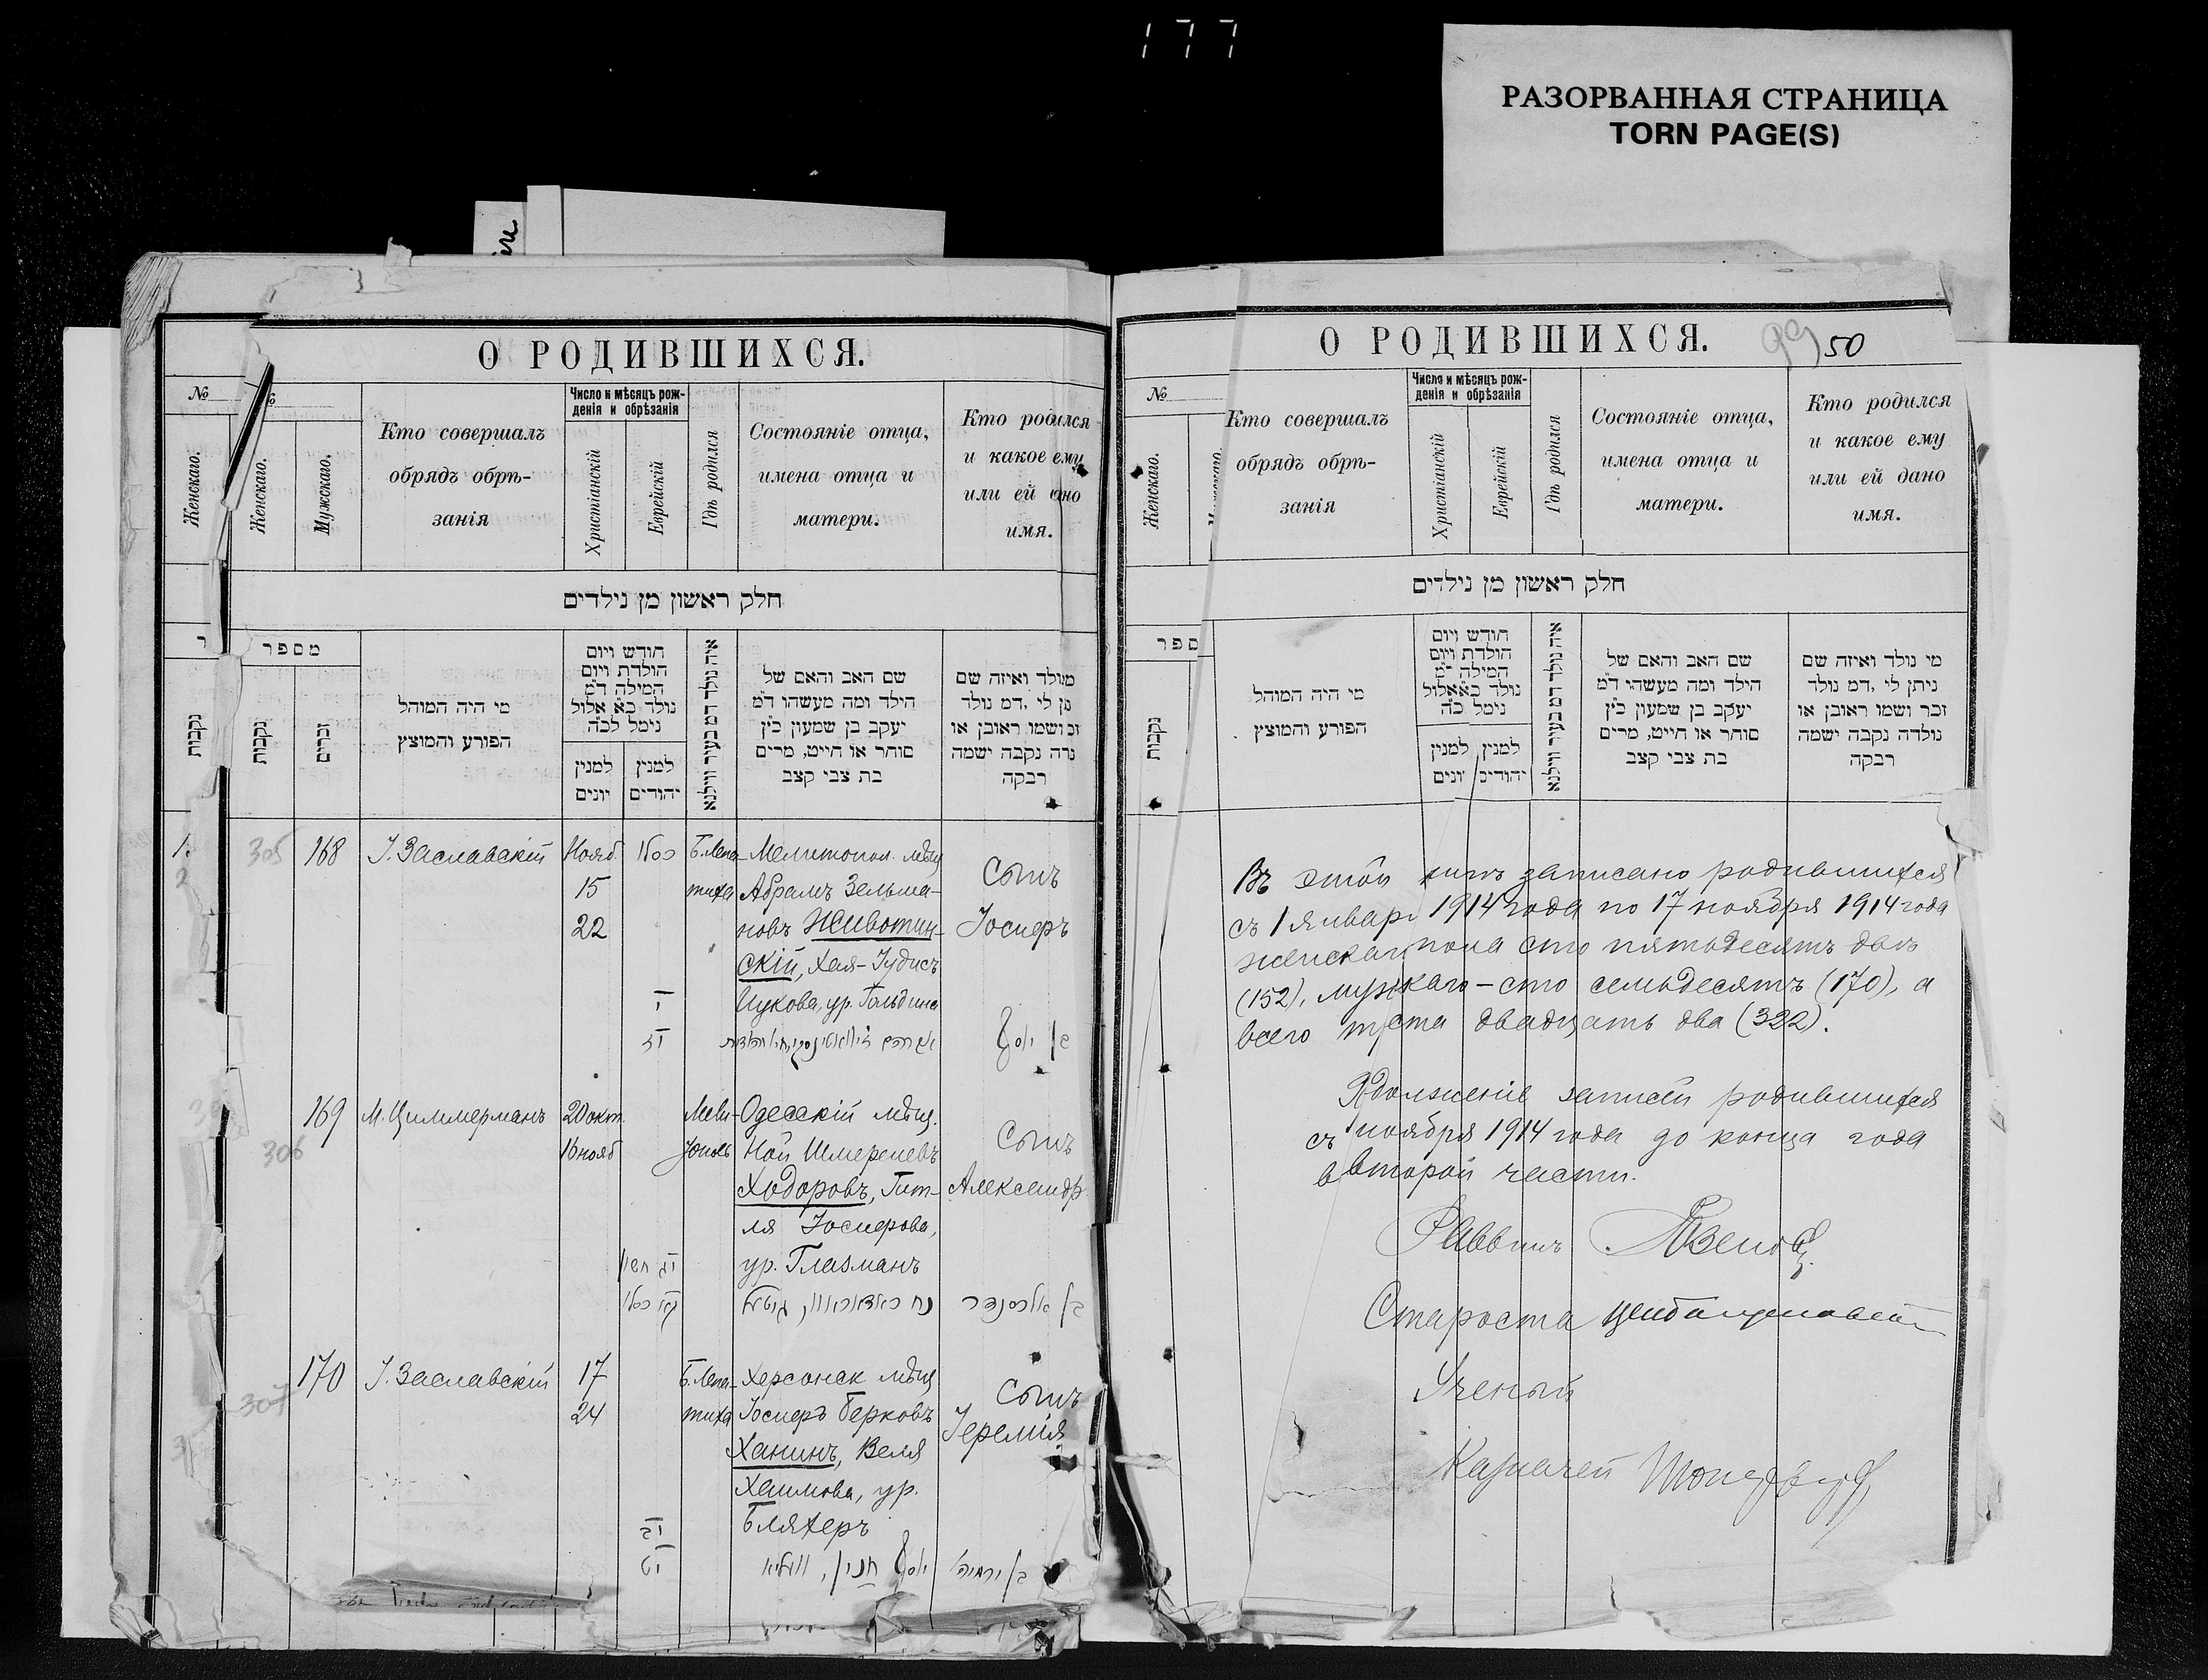 177
РАЗОРВАННАЯ СТРАНИЦА
TORN PAGE(S)
О РОДИВШИХСЯ.
№
Женскаго.
Женскаго.
Мужскаго.
Кто совершалъ
обрядъ обрѣ-
занія
Число и мѣсяцъ рож-
денія и обрѣзанія
Христіанскій
Еврейскій
Гдѣ родился
Состояніе отца,
имена отца и
матери.
Кто родился
и какое ему
или ей
имя.
חלק ראשון מן נילדים
מספר
נקבות
נקבות
זכרים
מי היה המוהל
הפורע והמוצץ
חודש ויום
הולדת ויום
המילה ד״מ
נולד כ״א אלול
נימל לכ״ה
למנין
יונים
למנין
יהודים
איה נולד דמ בעיר ווילנא
שם האב והאם של
הילד ומה מעשהו ד״מ
יעקב בן שמעון כ״ץ
סוחר או חייט, מרים
בת צבי קצב
ואיזה שם
לי ,דמ נולד
ושמו ראובן או
נקבה ישמה
רבקה
305
168
І. Заславскій
Нояб.
15
22
כסלו
Б. Лепа-
тиха
Мелитопол. мѣщ
Абрамъ Зельма-
новъ Животин-
скій, Хая-Іудисъ
ур. Гольдина
Сынъ
Іосифъ
בן יוסף
306
169
М. Циммерманъ
20 окт.
16 нояб
Одесскій мѣщ.
Ной Шмерелевъ
Ходоровъ, Гит-
ля Іосифова,
ур. Глазманъ
Сынъ
Александр
חשון
כסלו
בן אלכסנדר
307
170
І. Заславскій
17
24
Б. Лепа-
тиха
Херсонск мѣщ
Іосифъ Берковъ
Ханинъ, Веля
Хаимова, ур.
Бляхеръ
Сынъ
Іеремія
יב
יט
יוסף חנין, וועליא
בן ירמיה
О РОДИВШИХСЯ.
99
50
№
Женскаго.
Кто совершалъ
обрядъ обрѣ-
занія
Число и мѣсяцъ рож-
денія и обрѣзанія
Христіанскій
Еврейскій
Гдѣ родился
Состояніе отца,
имена отца и
матери.
Кто родился
и какое ему
или ей дано
имя.
חלק ראשון מן נילדים
ספר
נקבות
מי היה המוהל
הפורע והמוצץ
חודש ויום
הולדת ויום
המילה
נולד כ״א אלול
נימל כ״ה
למנין
יונים
למנין
יהודים
איה נולד דמ בעיר ווילנא
שם האב והאם של
הילד ומה מעשהו ד״מ
יעקב בן שמעון כ״ץ
סוחר או חייט, מרים
בת צבי קצב
מי נולד ואיזה שם
ניתן לי ,דמ נולד
זכר ושמו ראובן או
נולדה נקבה ישמה
רבקה
Въ этой записано родившихся
съ 1 Январ 1914 года по 17 ноября 1914 года
женскаго пола сто пятьдесятъ два
(152), мужскаго – сто семьдесятъ (170), а
всего триста двадцать два (322).
записи родившихся
съ ноября 1914 года до конца года
второй части.
Раввинъ
Староста
Ученый
Казначей